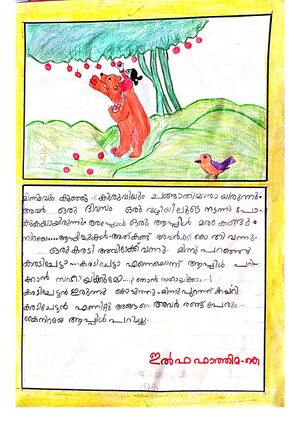 മിന്നുവും കുഞ്ഞു കുരുവിയും ചങ്ങാതിമാരായിരുന്നു.
അവർ ഒരു ദിവസം ഒരു വഴിയിലൂടെ നടന്നു പോ
കുകയായിരുന്നു. അപ്പോൾ ഒരു ആപ്പിൾ മരം കണ്ടു.
നിറയെ... ആപ്പിളുകൾ അത് കണ്ട് അവർക്ക് കൊതി വന്നു.
ഒരു കരടി അതിലേക്ക് വന്നു. മിന്നു പറഞ്ഞു
കരടിച്ചേട്ടാ കരടിച്ചേട്ടാ എന്നെയൊന്ന് ആപ്പിൾ പറി
ക്കാൻ സഹായിക്കുമോ..? ഞാൻ സഹായിക്കാം.!
കരടിച്ചേട്ടൻ ഇരുന്നു കൊടുന്നു. മിന്നു പുറത്ത് കയറി
കരടിച്ചേട്ടൻ എണീറ്റു അങ്ങനെ അവർ രണ്ട് പേരും
കൈനിറയെ ആപ്പിൾ പറിച്ചു.
ഇൽഫ ഫാത്തിമ-കെ